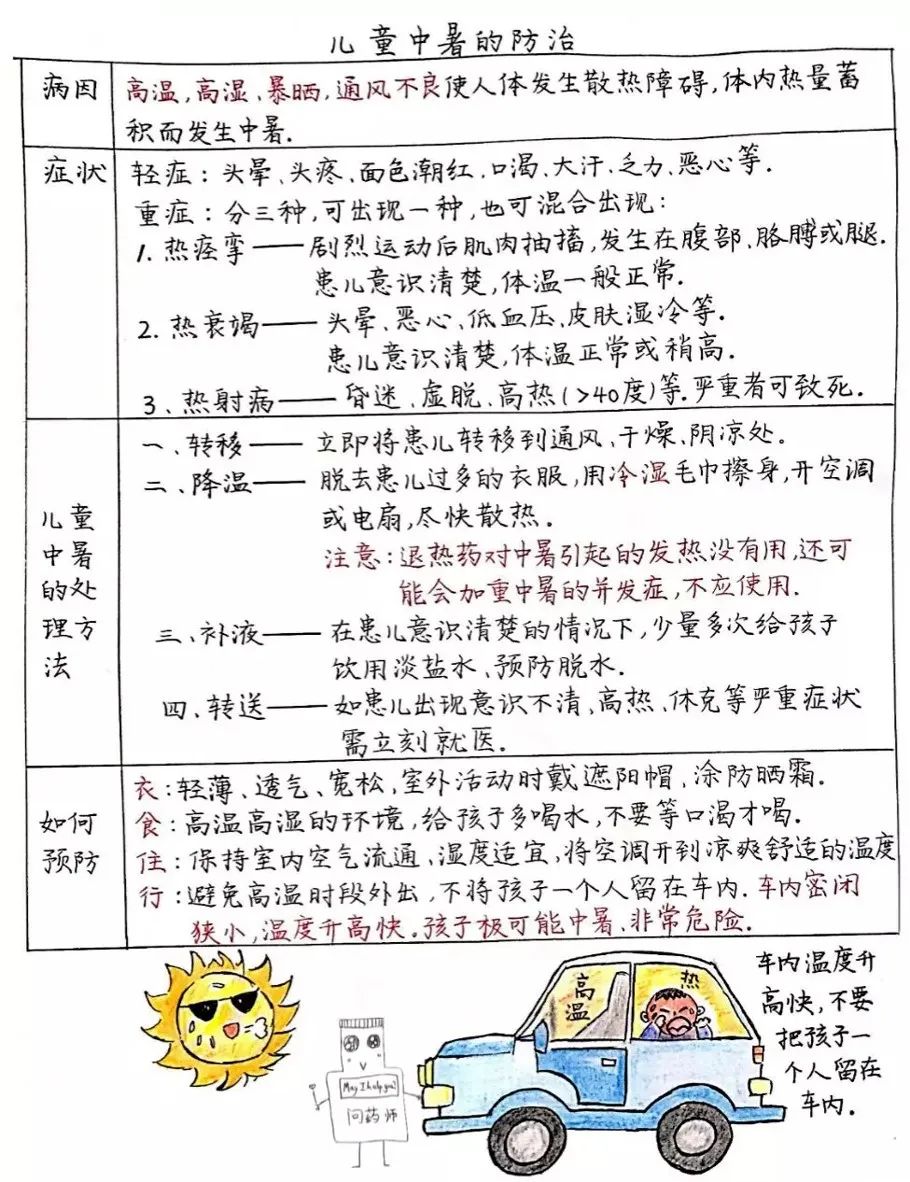 儿童中暑的防治
病因
高温,高湿、暴晒,通风不良使人体发生散热障碍,体内热量蓄
积而发生中暑.
症状
轻症:头晕、头疼、面色潮红,口渴、大汗、乏力、恶心等.
重症:分三种,可出现一种,也可混合出现:
1.热痉挛——剧烈运动后肌肉抽搐,发生在腹部、胳膊或腿.
患儿意识清楚,体温一般正常.
2.热衰竭——头晕、恶心、低血压、皮肤湿冷等.
患儿意识清楚,体温正常或稍高.
3、热射病——昏迷、虚脱、高热(>40度)等.严重者可致死.
儿童
中暑
的处
理方
法
一、转移——立即将患儿转移到通风、干燥、阴凉处.
二、降温——脱去患儿过多的衣服,用冷湿毛巾擦身,开空调
或电扇,尽快散热.
注意:退热药对中暑引起的发热没有用,还可
能会加重中暑的并发症,不应使用.
三、补液——在患儿意识清楚的情况下,少量多次给孩子
饮用淡盐水、预防脱水.
四、转送——如患儿出现意识不清、高热、休克等严重症状
需立刻就医.
如何
预防
衣:轻薄、透气、宽松,室外活动时戴遮阳帽、涂防晒霜.
食:高温高湿的环境,给孩子多喝水,不要等口渴才喝.
住:保持室内空气流通、湿度适宜,将空调开到凉爽舒适的温度
行:避免高温时段外出,不将孩子一个人留在车内.车内密闭
狭小,温度升高快.孩子极可能中暑、非常危险.
高温
热
车内温度升
高快,不要
把孩子一
个人留在
车内.
May I help you?
问药师